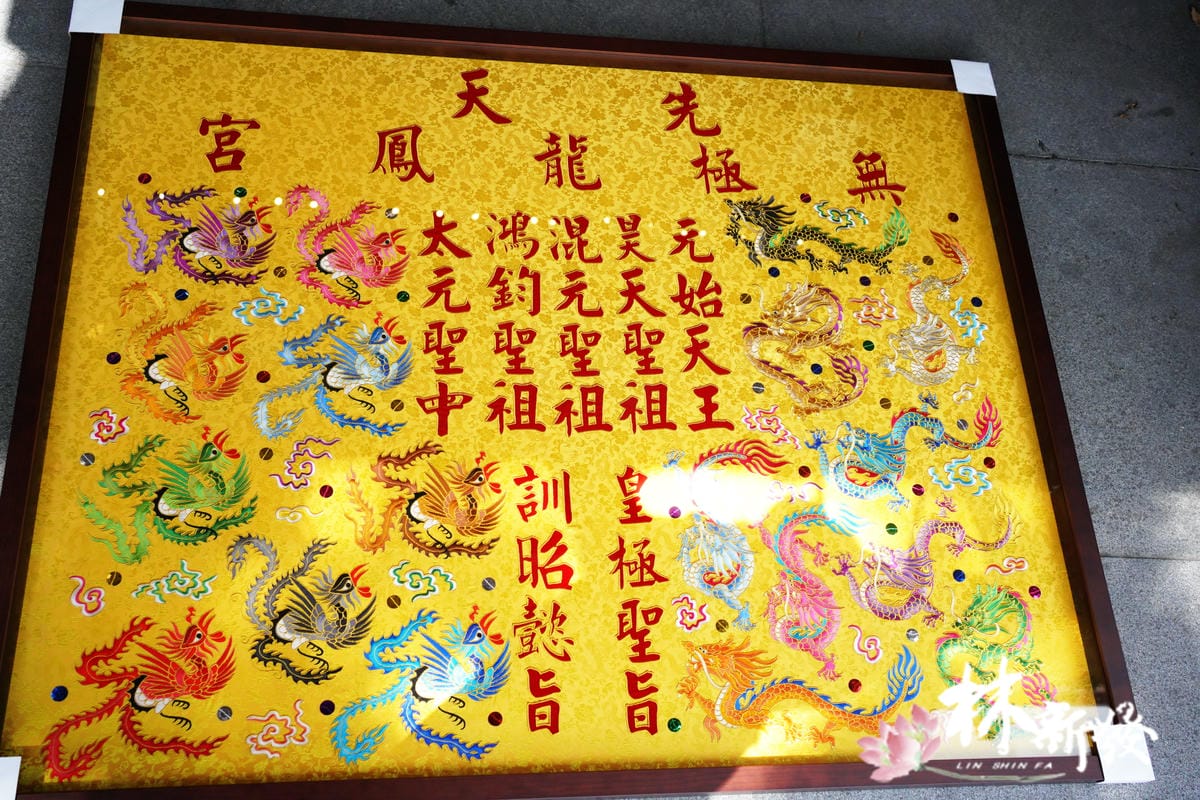 先天
無極龍鳳宮
元始天王
昊天聖祖
混元聖祖
鴻鈞聖祖
太元聖中
皇極聖旨
訓昭懿旨
林新發
LIN SHIN FA